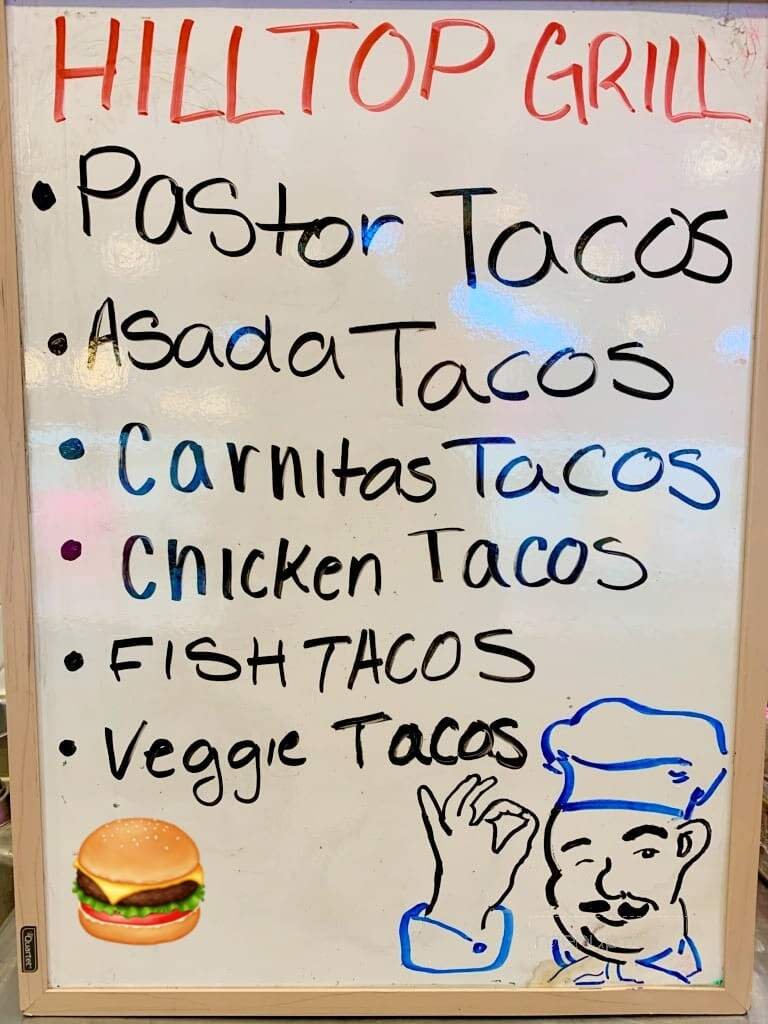 HILLTOP GRILL
• Pastor Tacos
• Asada Tacos
• Carnitas Tacos
• Chicken Tacos
• FISH TACOS
• Veggie Tacos
Quartet